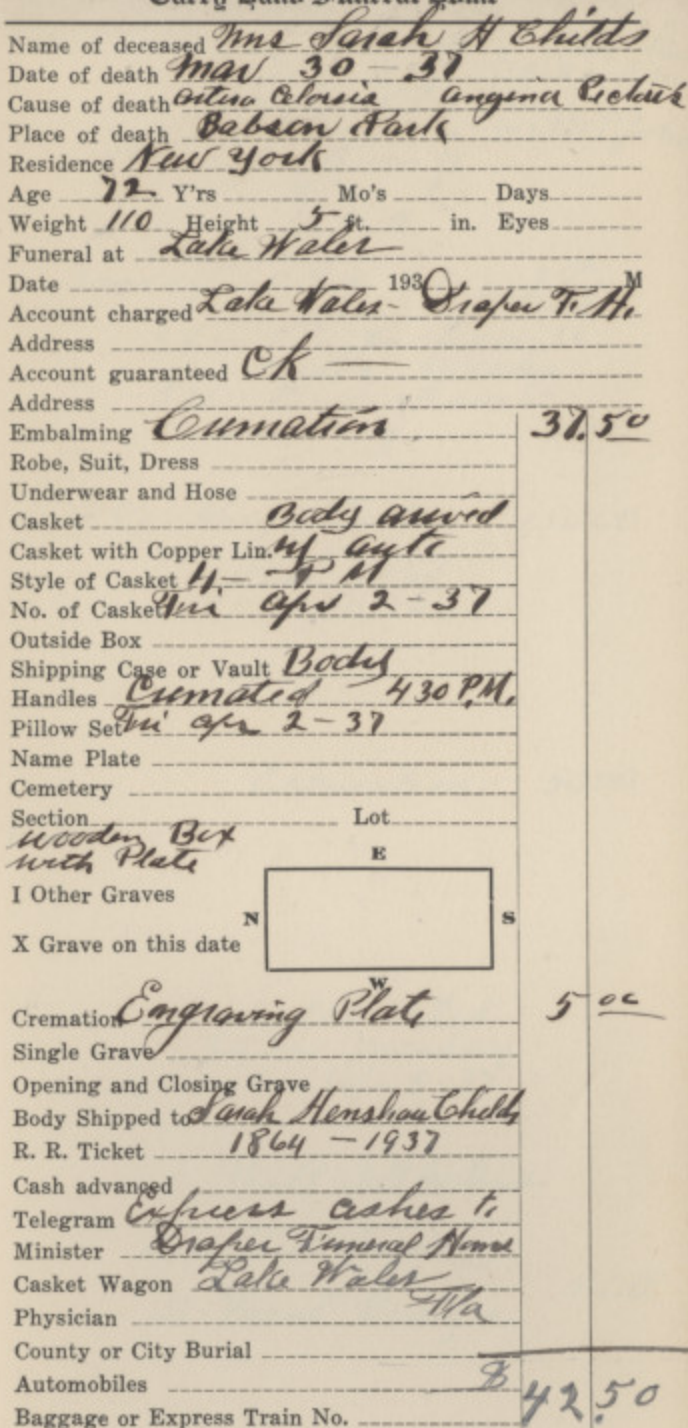 Curry Land Funeral Home
Name of deceased Mrs Sarah H Childs
Date of death Mar 30 - 37
Cause of death artero Clorsia angina Pectoris
Place of death Babson Park
Residence New York
Age 72 Y'rs Mo's Days
Weight 110 Height 5 ft. in. Eyes
Funeral at Lake Wales
Date 193 M
Account charged Lake Wales - Draper F. H.
Address
Account guaranteed Ck —
Address
Embalming Cremation 37.50
Robe, Suit, Dress
Underwear and Hose
Casket Body arived
Casket with Copper Lin. by auto
Style of Casket 4 - P M
No. of Casket Fri Apr 2 - 37
Outside Box
Shipping Case or Vault Body
Handles Cremated 4 30 P.M.
Pillow Set Fri Apr 2 - 37
Name Plate
Cemetery
Section Lot
wooden Box
with Plate
E
I Other Graves
N S
X Grave on this date
W
Cremation Engraving Plate 5 00
Single Grave
Opening and Closing Grave
Body Shipped to Sarah Henshaw Childs
R. R. Ticket 1864 - 1937
Cash advanced
Telegram Express ashes to
Minister Draper Funeral Home
Casket Wagon Lake Wales
Physician Fla
County or City Burial
Automobiles $ 42.50
Baggage or Express Train No.